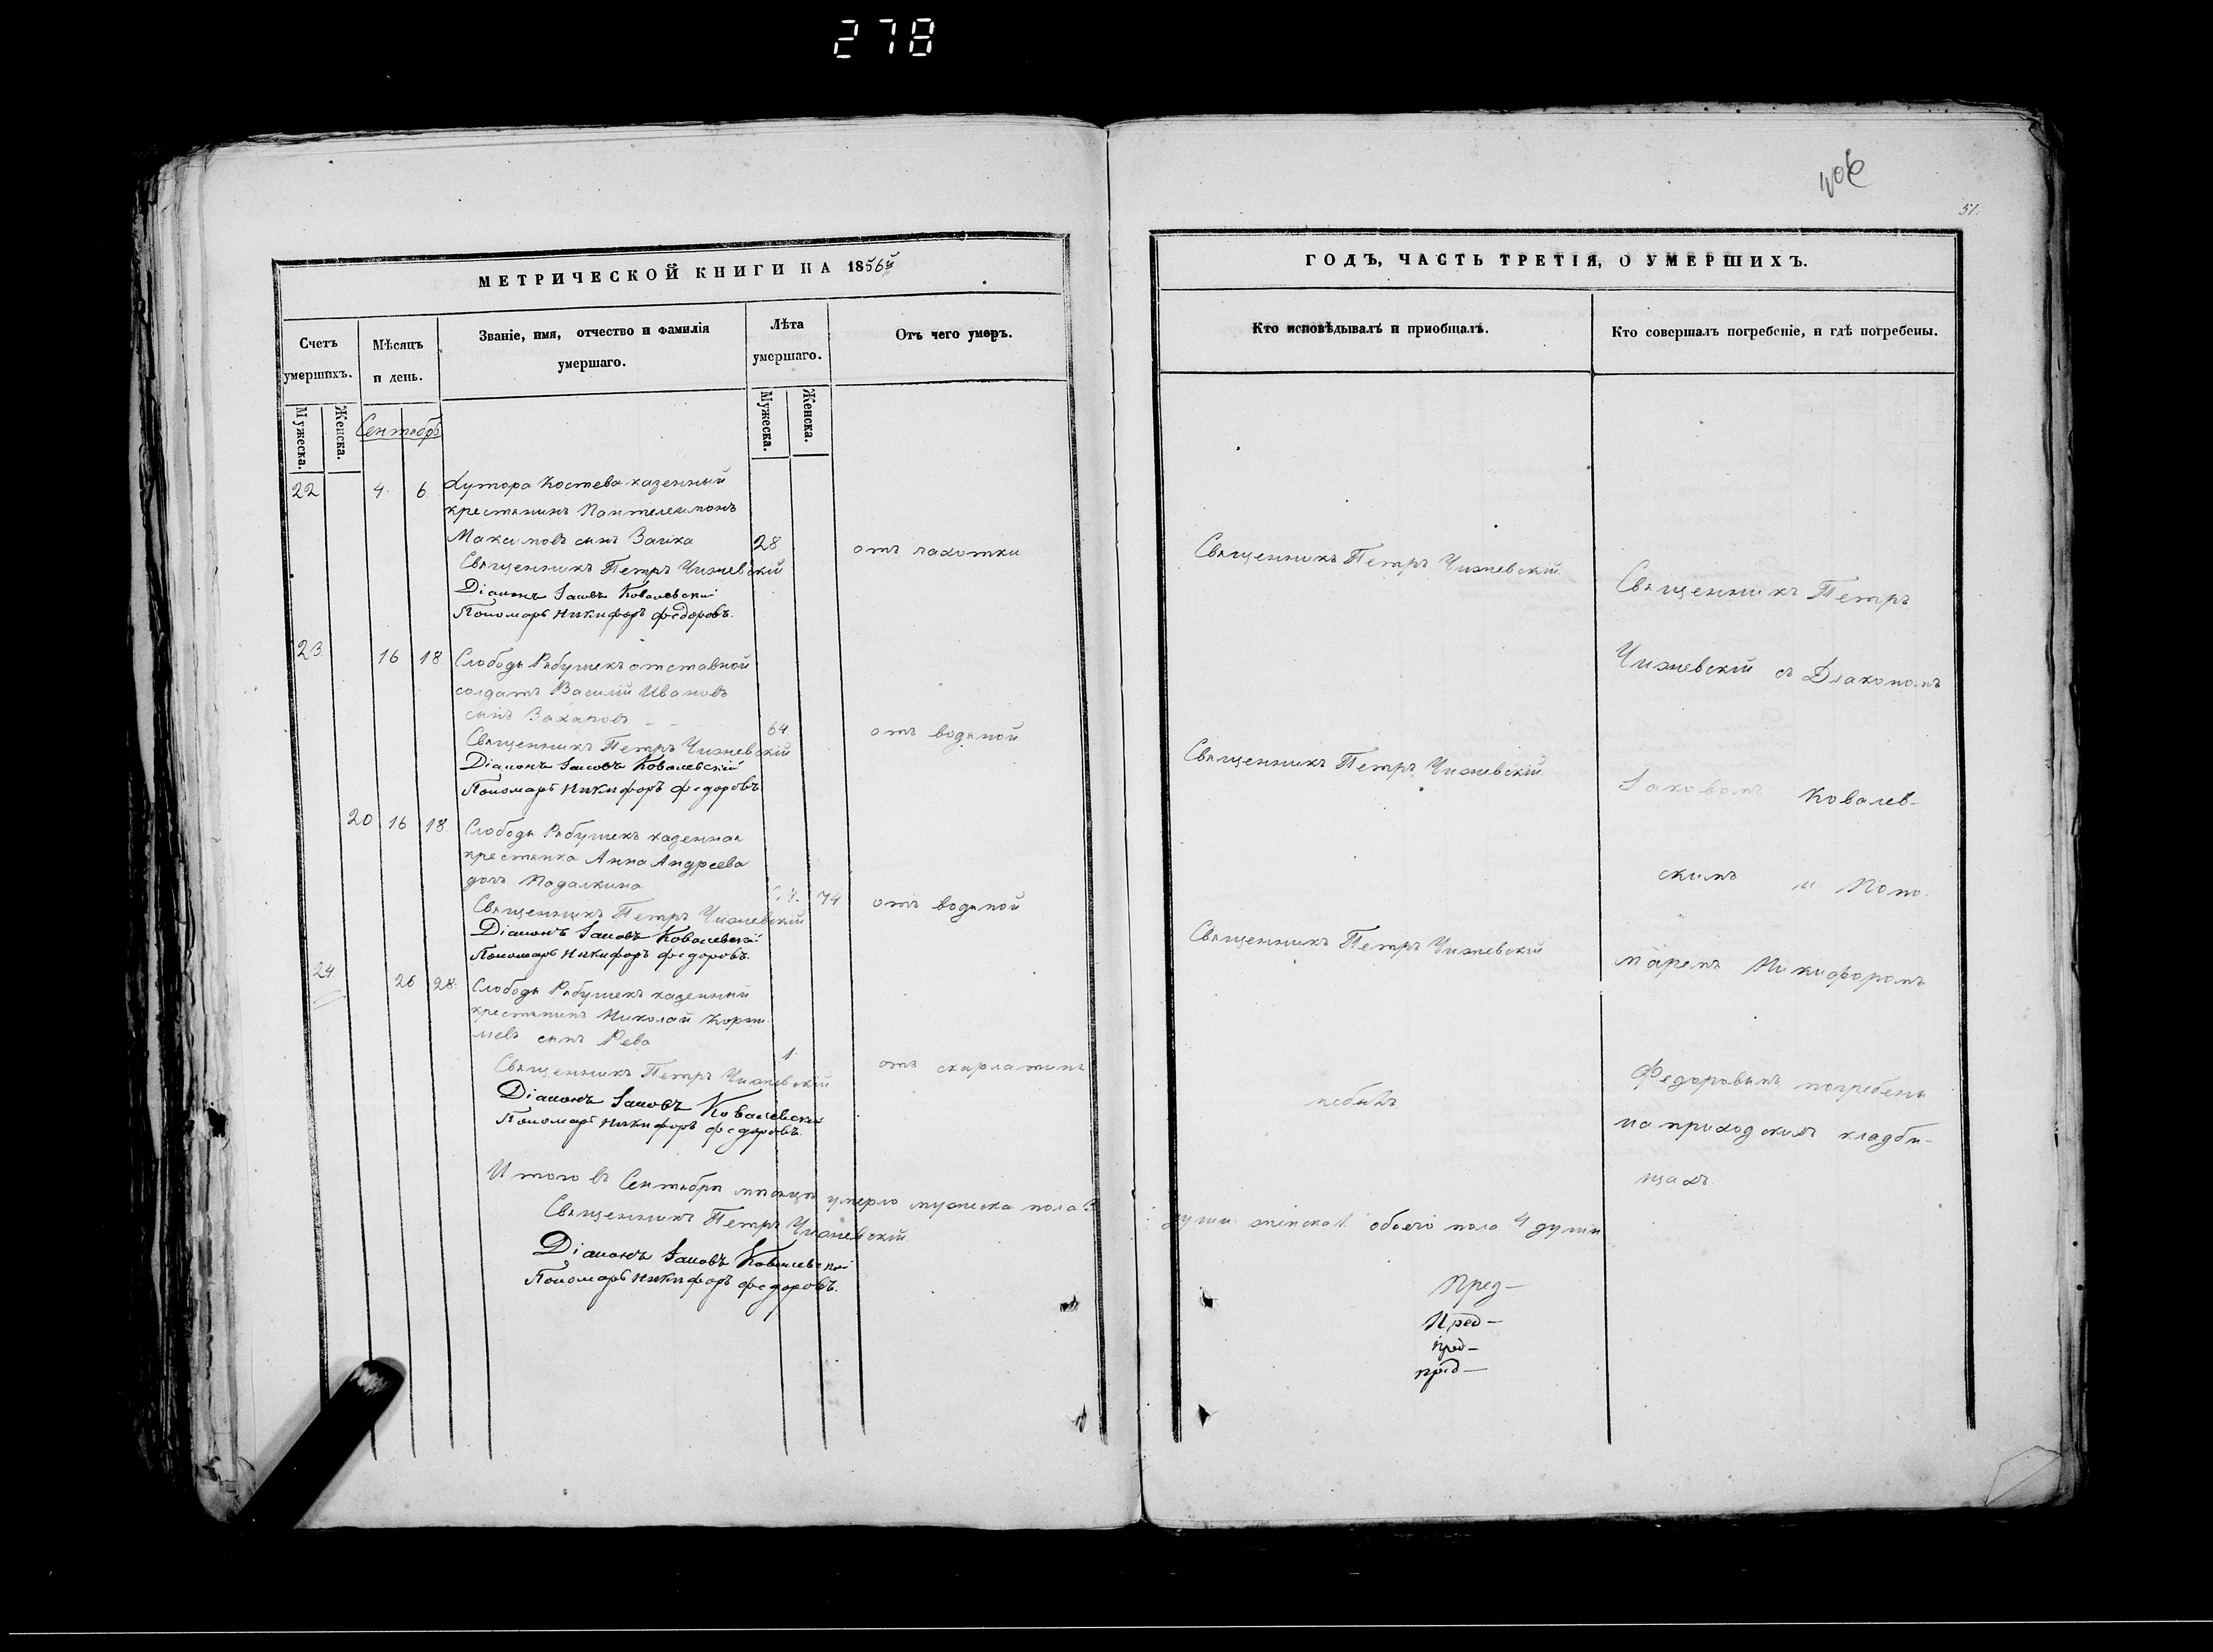 278
МЕТРИЧЕСКОЙ КНИГИ НА 1856й
Счетъ умершихъ.
Мѣсяцъ и день.
Званіе, имя, отчество и фамилія умершаго.
Лѣта умершаго.
Отъ чего умеръ.
Мужеска.
Женска.
Сентябрь
Мужеска.
Женска.
22 4. 6. Хутора Костева казенный
крестьянинъ Пантелеимонъ
Максимовъ сынъ Заика 28 отъ чахотки
Священникъ Петръ Чижевскій
Діаконъ Іаковъ Ковалевскій
Пономарь Никифоръ Федоровъ.
23. 16 18 Слободы Рябушекъ отставной
солдатъ Василій Ивановъ
сынъ 64. отъ водяной
Священникъ Петръ Чижевскій
Діаконъ Іаковъ Ковалевскій
Пономарь Никифоръ Федоровъ
20 16 18. Слободы Рябушекъ казенная
крестьянка Анна Андреева
дочь 74 отъ водяной
Священникъ Петръ Чижевскій
Діаконъ Іаковъ Ковалевскій
Пономарь Никифоръ Федоровъ.
24 26 28. Слободы Рябушекъ казенный
крестьянинъ Николай Корни-
лієвъ сынъ Рева 1 отъ скарлатины
Священникъ Петръ Чижевскій
Діаконъ Іаковъ Ковалевскій
Пономарь Никифоръ Федоровъ.
Итого въ Сентябрѣ мѣсяцѣ умерло мужеска пола 3
Священникъ Петръ Чижевскій
Діаконъ Іаковъ Ковалевскій
Пономарь Никифоръ Федоровъ.
406
51.
ГОДЪ, ЧАСТЬ ТРЕТІЯ, О УМЕРШИХЪ.
Кто исповѣдывалъ и приобщалъ.
Кто совершалъ погребеніе, и гдѣ погребены.
Священникъ Петръ Чижевскій
Священникъ Петръ Чижевскій
Священникъ Петръ Чижевскій
небылъ
души женска 1. обоего пола 4 души
Пред-
Пред-
пред-
пред-
Священникъ Петръ
Чижевскій съ Діакономъ
Іаковомъ Ковалев-
скимъ и Поно-
маремъ Никифоромъ
Федоровымъ погребены
на приходскихъ кладби-
щахъ